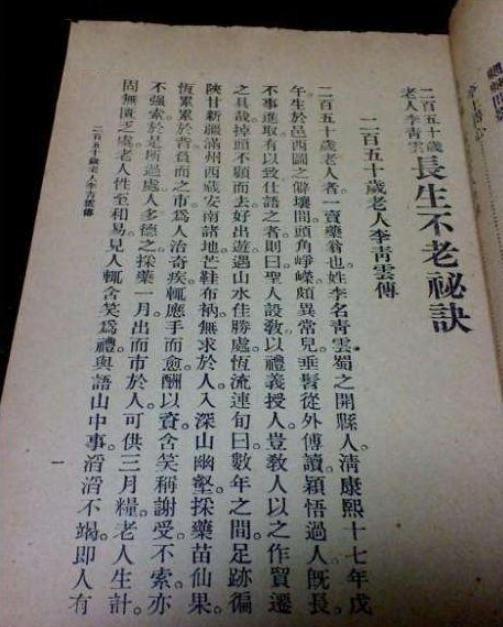 二百五十歲
老人李靑雲
長生不老祕訣
二百五十歲老人李靑雲傳
二百五十歲老人者。一賣藥翁也。姓李名靑雲。蜀之開縣人。淸康熙十七年戊
午。生於邑西圖之僻壤間。頭角崢嶸。頗異常兒。垂髫從外傅讀。穎悟過人。旣長。
不事進取。有以致仕語之者。則曰聖人設敎。以禮義授人。豈敎人以之作貿遷
之具哉。掉頭不顧而去。好出遊。遇山水佳勝處。恆流連旬日。數年之間。足跡徧
陝甘新疆滿州西藏安南諸地。芒鞋布衲。無求於人。入深山幽壑。採藥苗仙果。
恆累累於背。負而之市。爲人治奇疾。輒應手而愈。酬以資。含笑稱謝受。不索亦
不强索。於是所過處。人多德之。採藥一月。出而市於人。可供三月糧。老人生計。
固無匱乏處。老人性至和易。見人輒含笑爲禮。與語山中事。滔滔不竭。卽人有
二百五十歲老人李靑雲傳
一